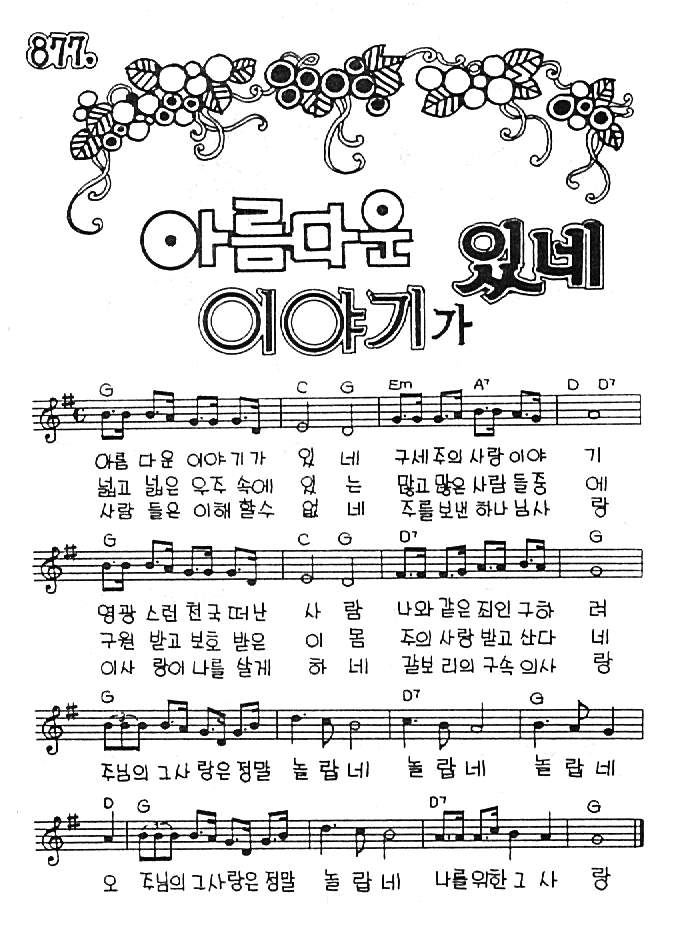 877.
아름다운 있네
이야기가
G C G Em A7 D D7
아름 다운 이야기가 있 네 구세주의 사랑이야 기
넓고 넓은 우주 속에 있 는 많고 많은 사람 들중 에
사람 들은 이해 할수 없 네 주를 보낸 하나 님사 랑
G C G D7 G
영광 스런 천국 떠난 사 람 나와 같은 죄인 구하 러
구원 받고 보호 받은 이 몸 주의 사랑 받고 산다 네
이사 랑이 나를 살게 하 네 갈보 리의 구속 의사 랑
G D7 G
3
주님의 그사 랑은 정말 놀 랍 네 놀 랍 네 놀 랍 네
D G D7 G
3
오 주님의 그사랑은 정말 놀 랍 네 나를위한 그 사 랑